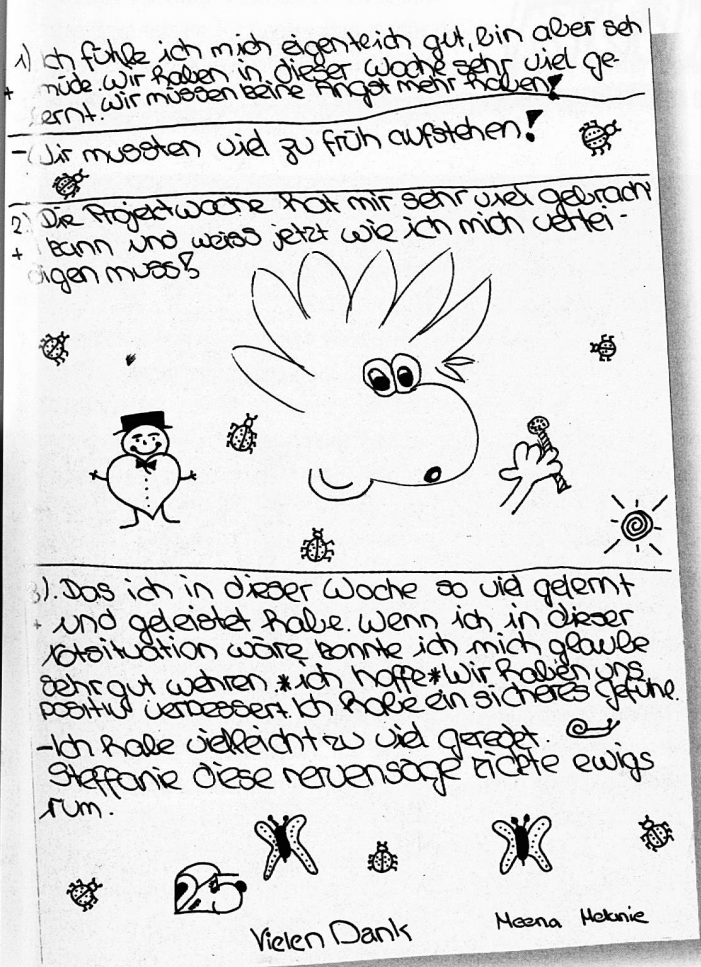 1) Ich fühle ich mich eigentlich gut, bin aber seh
+ müde. Wir haben in dieser Woche sehr viel ge-
lernt. Wir müssen keine Angst mehr haben!
- Wir mussten viel zu früh aufstehen!
2) Die Projektwoche hat mir sehr viel gebrach
+ kann und weiss jetzt wie ich mich vertei-
digen muss!
3). Das ich in dieser Woche so viel gelernt
+ und geleistet habe. Wenn ich in dieser
Notsituation wäre konnte ich mich glaube
sehr gut wehren. *ich hoffe* Wir haben uns
positiv verbessert. Ich habe ein sicheres Gefühl.
-Ich habe vielleicht zu viel geredet.
Steffanie diese nervensäge zickte ewigs
rum.
Vielen Dank
Meena Melanie